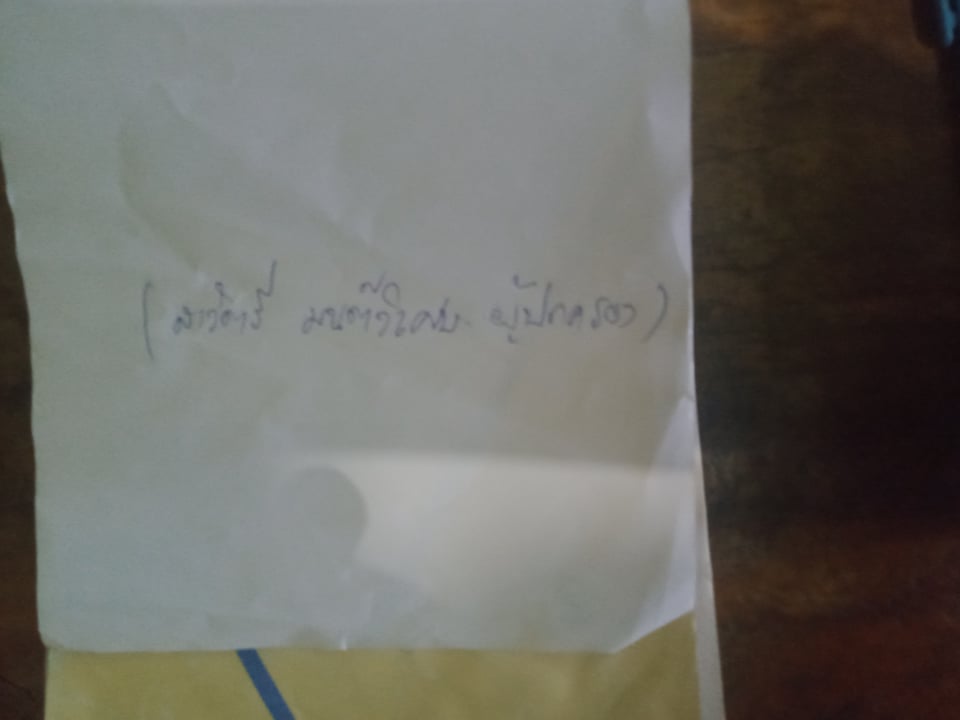 (สาวิตรี มนต์วิเศษ ผู้ปกครอง)